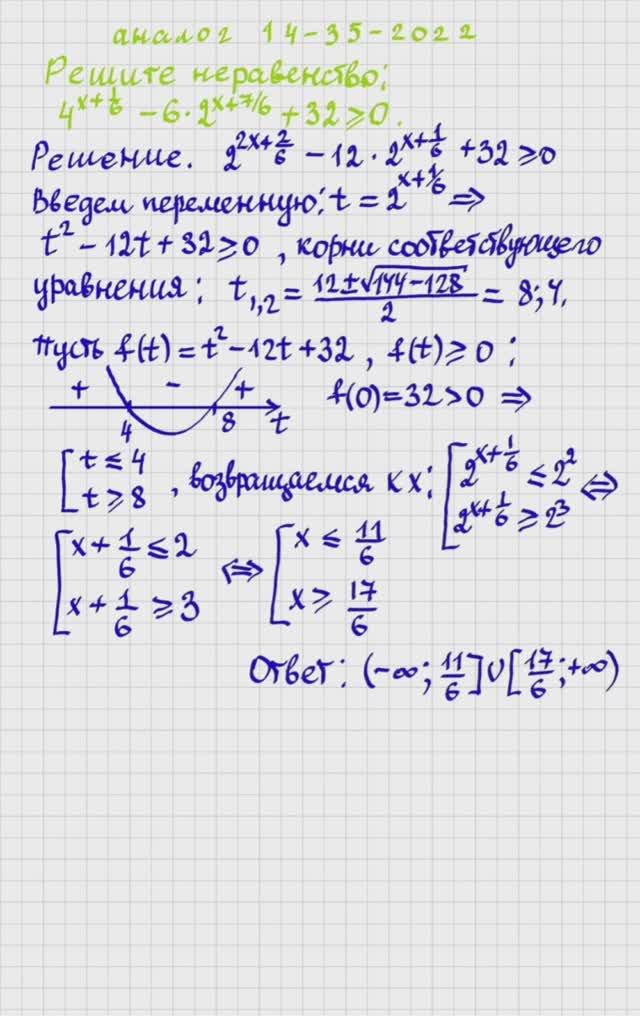 аналог 14-35-2022
Решите неравенство:
4^{x+1/6} - 6·2^{x+7/6} + 32 ≥ 0.
Решение. 2^{2x+2/6} - 12·2^{x+1/6} + 32 ≥ 0
Введем переменную: t = 2^{x+1/6} ⇒
t² - 12t + 32 ≥ 0, корни соответствующего
уравнения: t_{1,2} = (12±√(144-128))/2 = 8; 4.
Пусть f(t) = t² - 12t + 32, f(t) ≥ 0;
+ - + f(0) = 32 > 0 ⇒
4 8 t
[t ≤ 4
t ≥ 8, возвращаемся к x: [2^{x+1/6} ≤ 2²
2^{x+1/6} ≥ 2³ ⇔
[x + 1/6 ≤ 2
x + 1/6 ≥ 3 ⇔ [x ≤ 11/6
x ≥ 17/6
Ответ: (-∞; 11/6] ∪ [17/6; +∞)